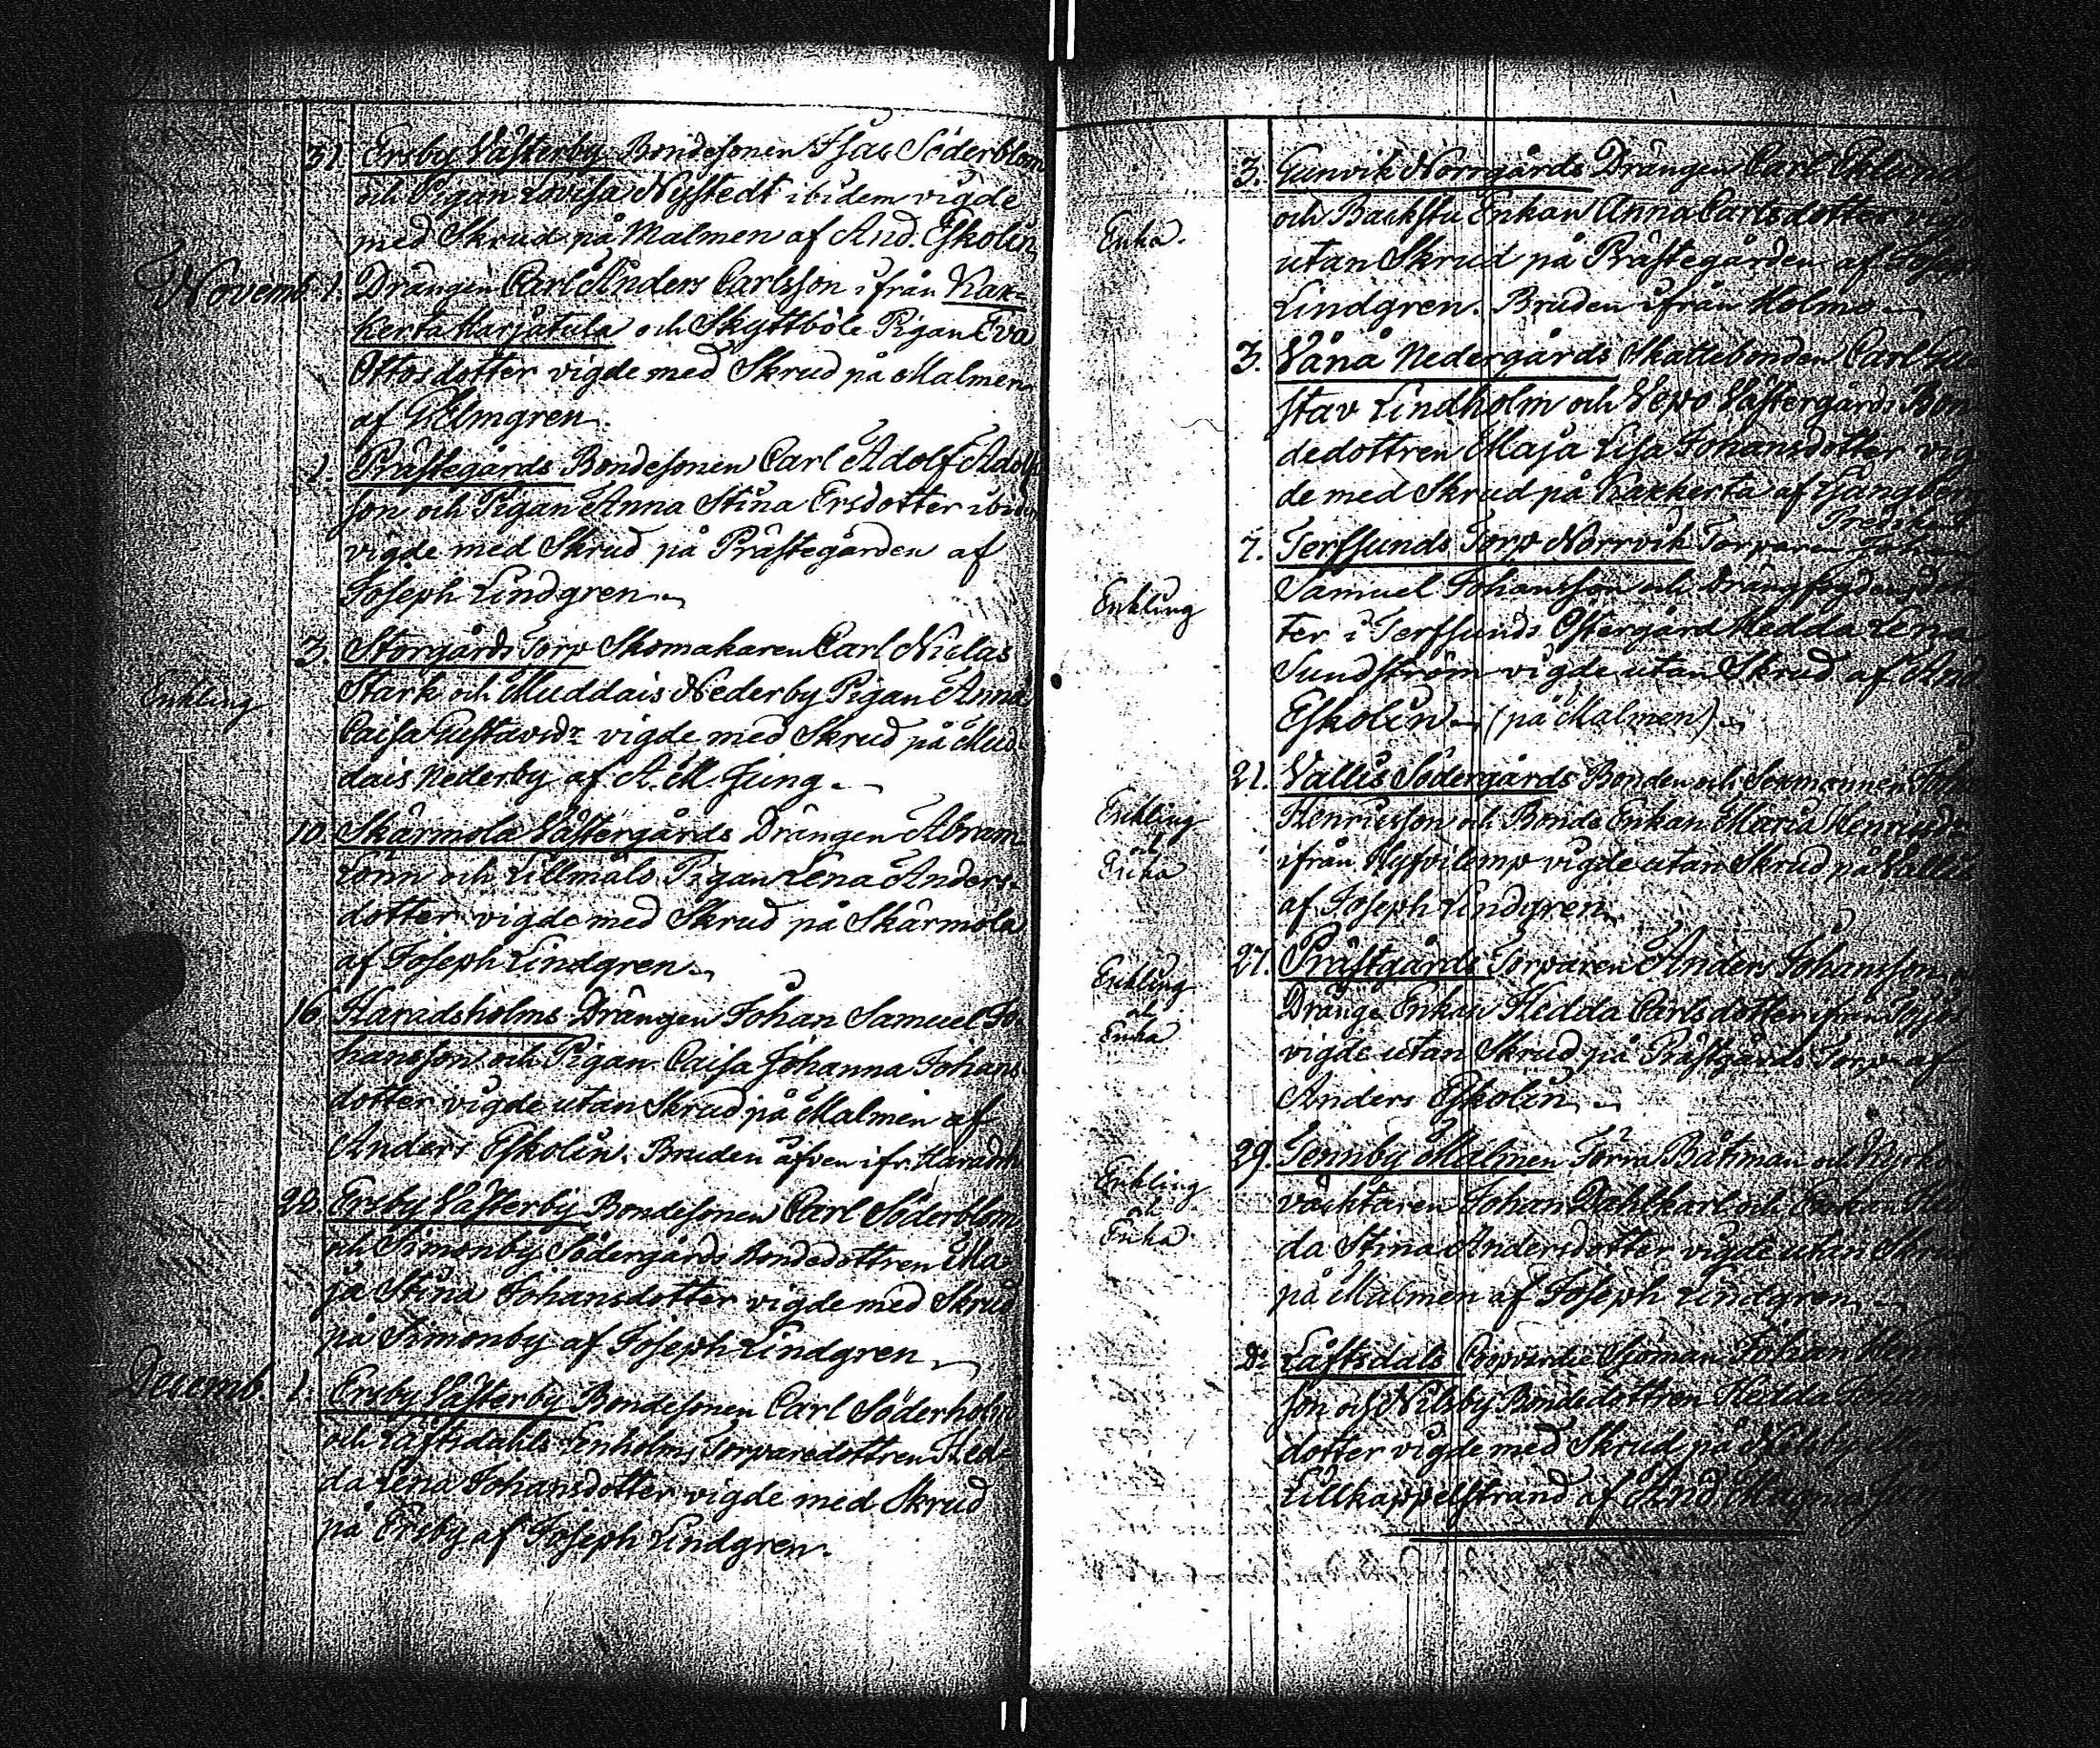 31. Ersby Västerby Bondesonen Isac Söderblom
och Pigan Lovisa Nystedt ibidem vigde
med Skrud på Malmen af And. Eskolin
Novemb. 1. Drängen Carl Anders Carlsson ifrån Kak-
kerta Harjatula och Skyttböle Pigan Eva
Ottosdotter vigde med Skrud på Malmen
af G Elmgren.
1. Prästegårds Bondesonen Carl Adolf Adolf
son och Pigan Anna Stina Ersdotter ibidem
vigde med Skrud på Prästegården af
Joseph Lindgren.
3. Storgårds Torp Skomakaren Carl Niclas
Enkling
Stark och Muddais Nederby Pigan Anna
Caisa Gustavsdr vigde med Skrud på Mud-
dais Nederby af A. M. Jung.
10. Skärmola Västergårds Drängen Abram
Lönn och Lillmälo Pigan Lena Anders-
dotter vigde med Skrud på Skärmola
af Joseph Lindgren.
16. Haradsholms Drängen Johan Samuel Jo-
hansson och Pigan Caisa Johanna Johans
dotter vigde utan Skrud på Malmen af
Anders Eskolin. Bruden äfven ifr. Haradsh
Ersby Västerby Bondesonen Carl Söderblom
och Simonby Södergårds Bondedottren Ma
ja Stina Johansdotter vigde med Skrud
på Simonby af Joseph Lindgren
Decemb. 1. Ersby Västerby Bondesonen Carl Söderholm
och Låftsdahls Torparedottren Hed-
da Lena Johansdotter vigde med Skrud
på Ersby af Joseph Lindgren.
3. Gunvik Norrgårds Drängen Carl Eklund
Enka.
och Backstu Enkan Anna Carlsdotter vig
utan Skrud på Prästegården af Joseph
Lindgren. Bruden ifrån Holmo
3. Vånå Nedergårds Skattebonden Carl Gu
stav Lindholm och Vepo Västergårds Bon
dedottren Maja Lisa Johansdotter vig
de med Skrud på Kakkerta af Ljungberg
Predikant
7. Terfsunds Torp Norrvik Torparen Johan
Enkling
Samuel Johansson och
ter i Terfsunds Östergård Hedda Lena
Sundström vigde utan Skrud af And
Eskolin (på Malmen)
21. Vallis Södergårds Bonden och Sexmannen Johan
Enkling
och
Enka
Henricsson och Bonde Enkan Maria Henricsdr
ifrån vigde utan Skrud på Vallis
af Joseph Lindgren
27. Prästgårds Torparen Anders Johansson
Enkling
och
Enka
Dränge Enkan Hedda Carlsdotter ifrån
vigde utan Skrud på Prästgårds Torp af
Anders Eskolin
29. Tennby Malmen Båtsman och
Enkling
och
Enka
väcktaren Johan Dahlkarl och Enkan Hed
da Stina Andersdotter vigde utan Skrud
på Malmen af Joseph Lindgren
Do Låftsdals Coopvardie Sjöman Johan Henric
son och Nilsby Bondedottren Hedda Johans
dotter vigde med Skrud på Nilsby
Lillkappelstrand af And Magnus Jung